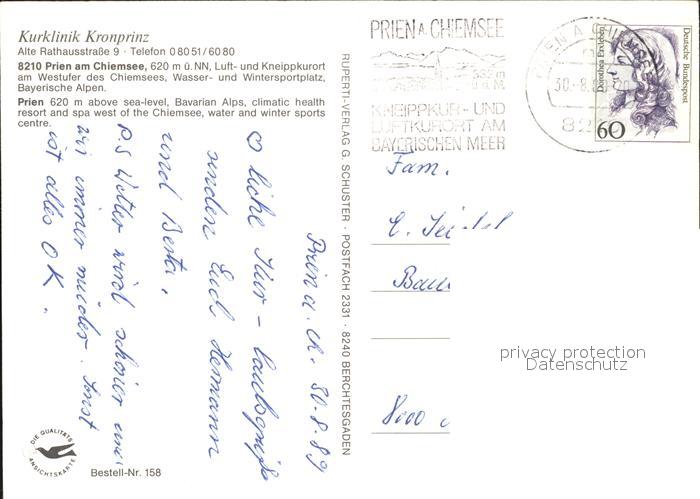 Kurklinik Kronprinz
Alte Rathausstraße 9 · Telefon 0 80 51 / 60 80
8210 Prien am Chiemsee, 620 m ü. NN, Luft- und Kneippkurort
am Westufer des Chiemsees, Wasser- und Wintersportplatz,
Bayerische Alpen.
Prien 620 m above sea-level, Bavarian Alps, climatic health
resort and spa west of the Chiemsee, water and winter sports
centre.
Prien a. Ch. 30.8.89
liebe
senden Euch Hermann
und Berta.
P.S Wetter wird schöner und
wir immer müder. Sonst
ist alles OK.
DIE QUALITÄTS
ANSICHTSKARTE
Bestell-Nr. 158
RUPERTI-VERLAG G. SCHUSTER · POSTFACH 2331 · 8240 BERCHTESGADEN
PRIEN A. CHIEMSEE
532 m
ü. d. M.
KNEIPPKUR- UND
LUFTKURORT AM
BAYERISCHEN MEER
PRIEN A CHIEMSEE
30.-8.
82
Deutsche Bundespost
Dorothea Erxleben
60
Fam.
8000
privacy protection
Datenschutz